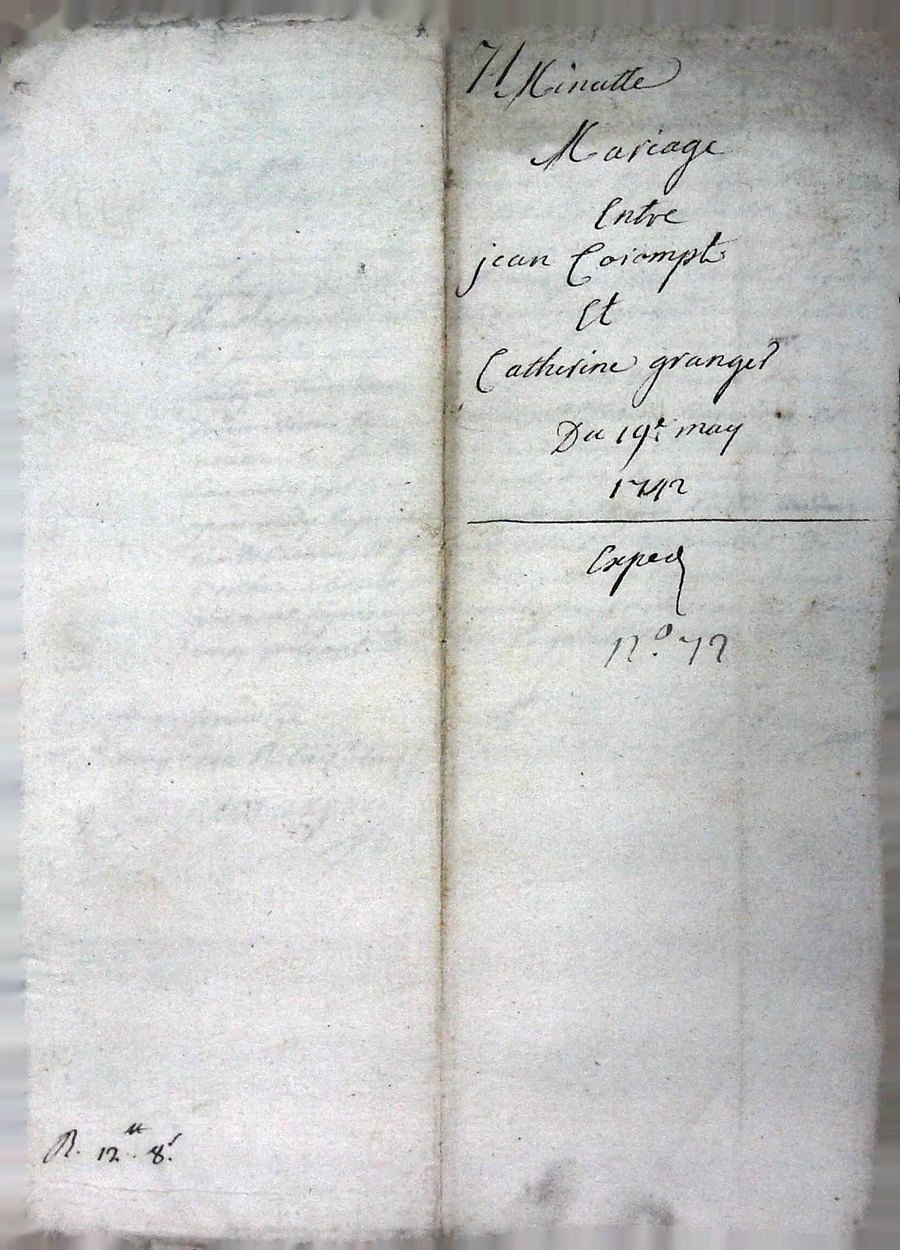 71 Minutte
Mariage
Entre
jean Coiompt
Et
Catherine granger
Du 19e may
1742
Exped
n.o 72
R. 12tt. 8s.